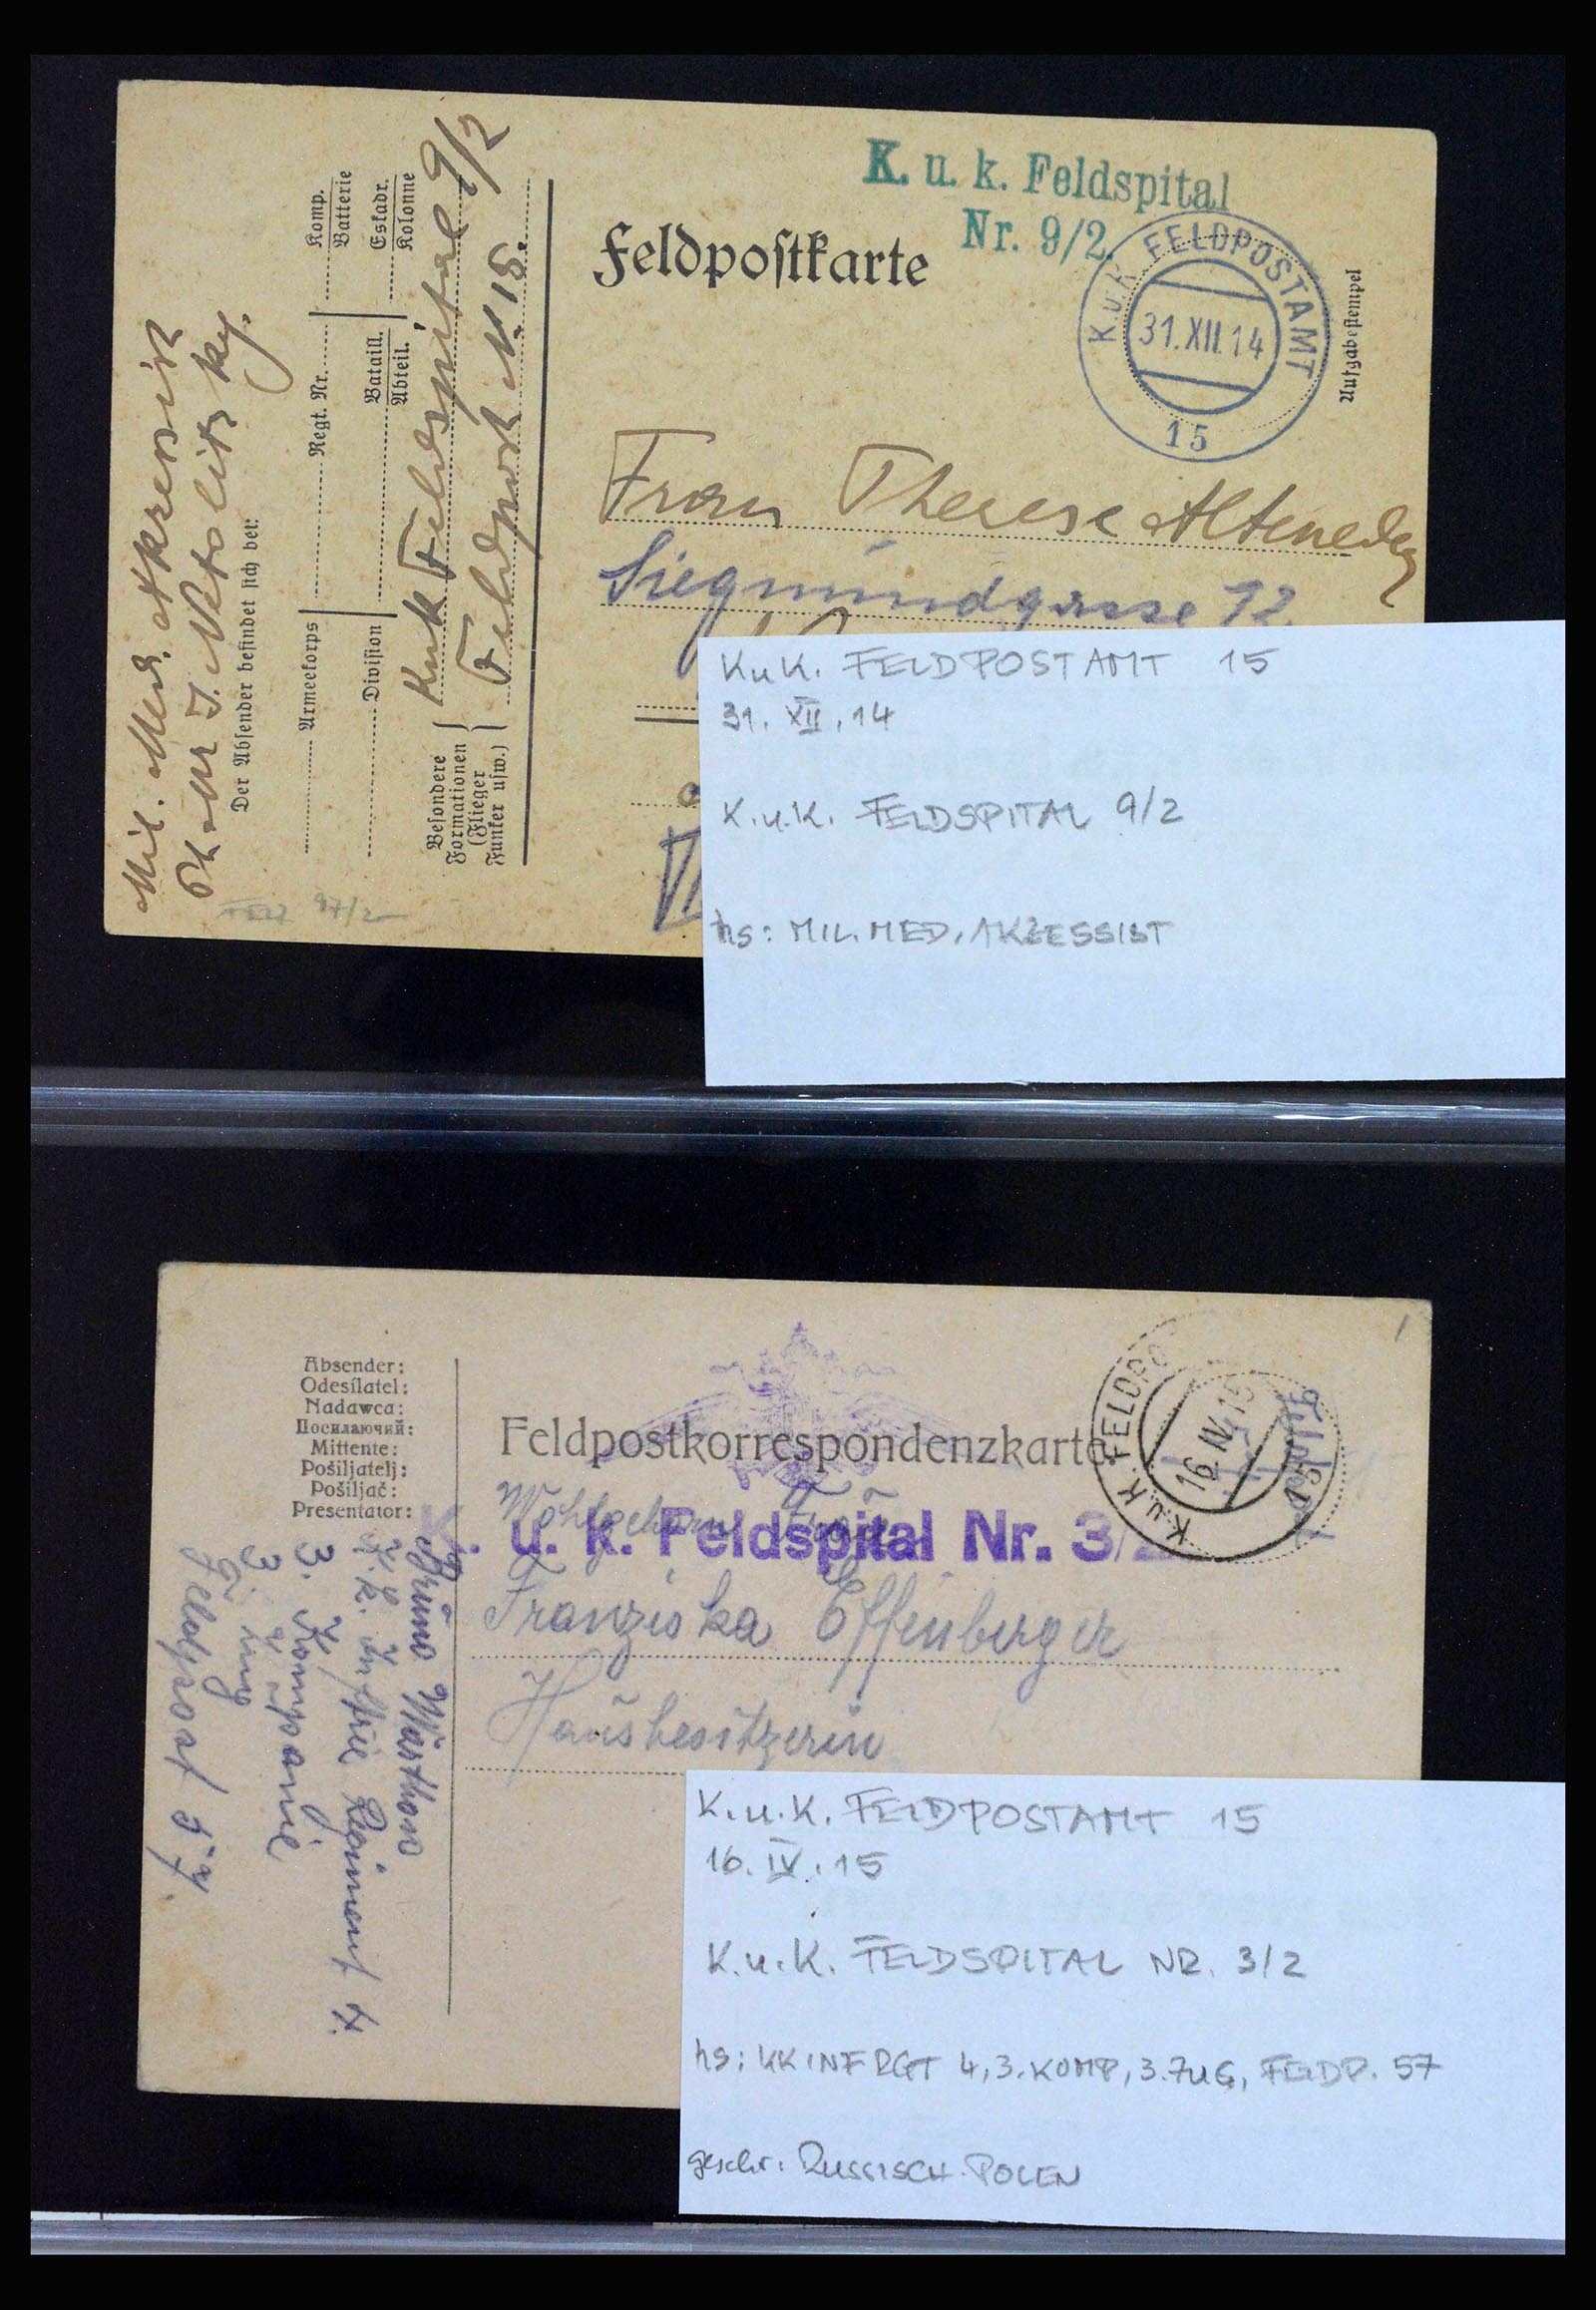 K. u. k. Feldspital
Nr. 9/2.
Feldpostkarte
K.u.K. FELDPOSTAMT
31.XII.14
15
Aufgabestempel
Frau Therese
Siegmundgasse 12.
VII
Mil. Med. Akzessist
Der Absender befindet sich bei:
Armeekorps Regt. Nr. Komp. Batterie
Division Bataill. Abteil. Eskadr. Kolonne
Besondere
Formationen
(Flieger
Funker usw.)
KuK Feldspital 9/2
Feldpost N 15.
KuK. FELDPOSTAMT 15
31. XII. 14
K.u.K. FELDSPITAL 9/2
hs: MIL. MED. AKZESSIST
Absender:
Odesílatel:
Nadawca:
Посилаючий:
Mittente:
Pošiljatelj:
Pošiljač:
Presentator:
Feldpostkorrespondenzkarte.
K.u.K. FELDPO
16 IV 15
u. k. Feldspital Nr. 3/2
Franziska Effenberger
Hausbesitzerin
Bruno
k. k. Inftrie Regiment 4.
3. Kompanie
3. Zug
Feldpost 57.
K.u.K. FELDPOSTAMT 15
16. IV. 15
K.u.K. FELDSPITAL NR. 3/2
hs: KK INF RGT 4, 3. KOMP, 3. ZUG, FELDP. 57
geschr: RUSSISCH-POLEN